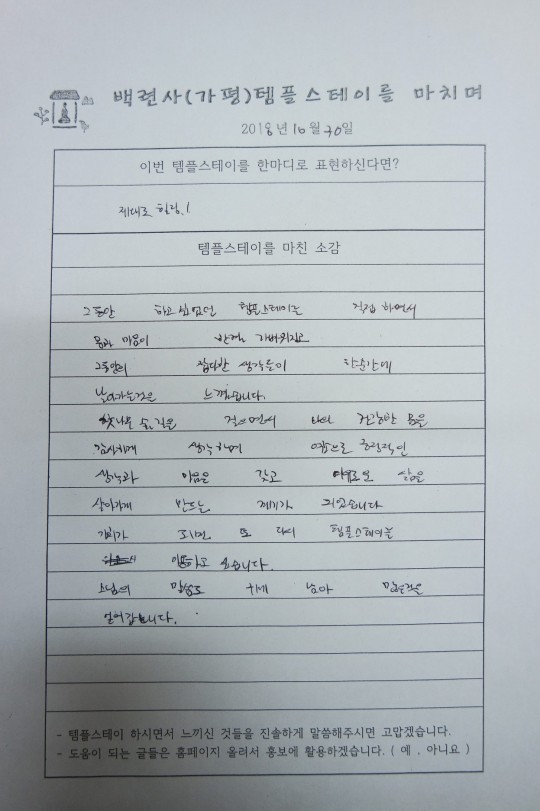 백련사(가평)템플스테이를 마치며
2018년 10월 30일
이번 템플스테이를 한마디로 표현하신다면?
제대로 힐링!
템플스테이를 마친 소감
그동안 하고싶었던 템플스테이를 직접 하면서
몸과 마음이 한결 가벼워지고
그동안의 잡다한 생각들이 한순간에
날아가는것을 느꼈습니다.
잣나무 숲 길을 걸으면서 건강한 몸을
감사하게 생각하며 앞으로 긍정적인
생각과 마음을 갖고 삶을
살아가게 만드는 계기가 되었습니다
기회가 되면 또 다시 템플스테이를
하고 싶습니다.
스님의 말씀도 남아
얻어갑니다.
- 템플스테이 하시면서 느끼신 것들을 진솔하게 말씀해주시면 고맙겠습니다.
- 도움이 되는 글들은 홈페이지 올려서 홍보에 활용하겠습니다. ( 예 . 아니요 )